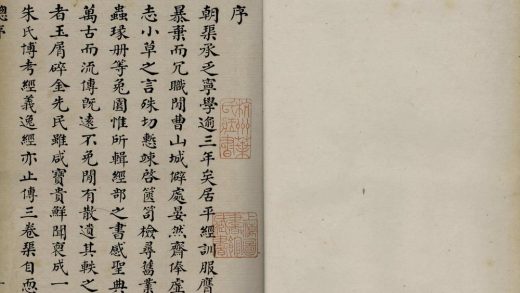 序
朝渠承乏寧學逾三年矣居平經訓服膺
暴棄而冗職閒曹山城僻處晏然齋俸虛
志小草之言殊切慙竦啓篋笥檢尋舊業
蟲瑑册等兔園惟所輯經部之書感聖典
萬古而流傳既遠不免閒有散遺其軼之
者玉屑碎金先民雖咸寶貴鮮聞裒成一
朱氏博考經義逸經亦止傳三卷渠自
總序
杭州葉氏藏書
上海圖書館藏書